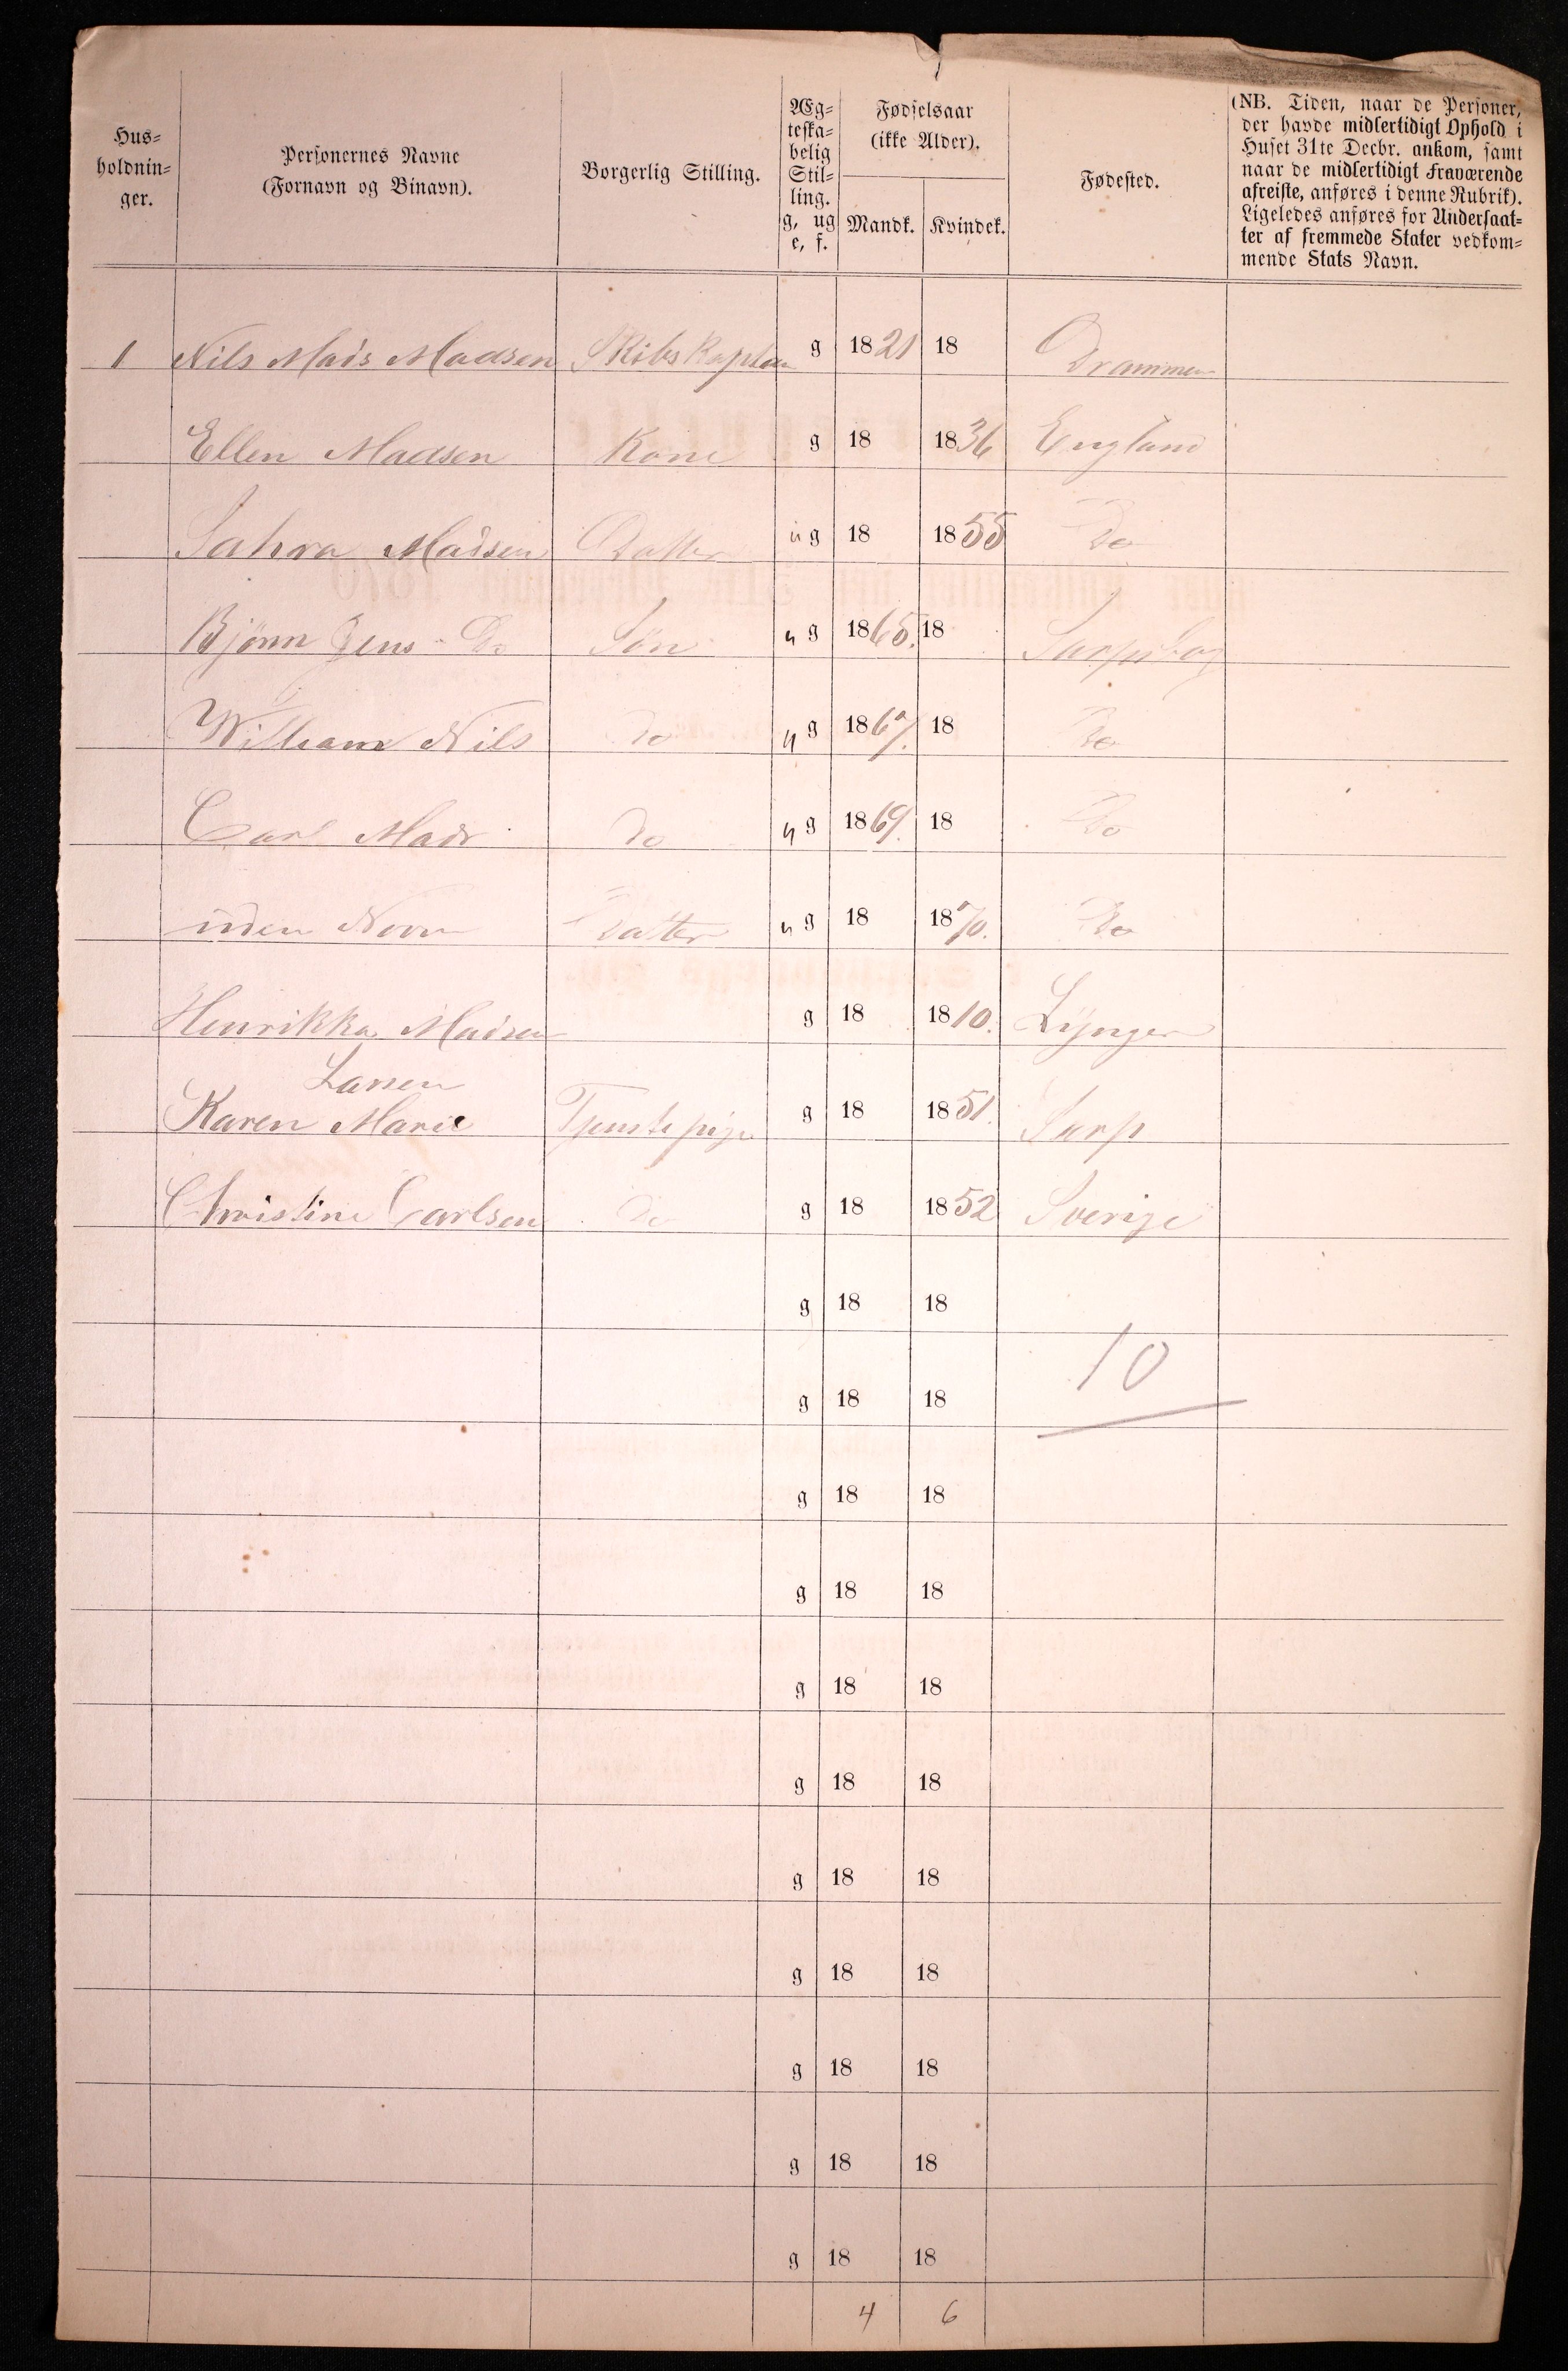 Hus=
holdnin=
ger.
Personernes Navne
(Fornavn og Binavn).
Borgerlig Stilling.
Æg=
teska=
belig
Stil=
ling.
g, ug
e, f.
Fødselsaar
(ikke Alder).
Mandk. Kvindek.
Fødested.
(NB. Tiden, naar de Personer,
der havde midlertidigt Ophold i
Huset 31te Decbr. ankom, samt
naar de midlertidigt Fraværende
afreiste, anføres i denne Rubrik).
Ligeledes anføres for Undersaat=
ter af fremmede Stater vedkom=
mende Stats Navn.
1 Nils Mads Madsen Skibskaptein g 1821 18 Drammen
Ellen Madsen Kone g 18 1836 England
Sahra Madsen Datter ug 18 1855 Do
Bjönn Jens Do Sön ug 1865. 18 Sarpsborg
William Nils Do ug 1867. 18 Do
Carl Mads Do ug 1869. 18 Do
uden Navn Datter ug 18 1870. Do
Henrikka Madsen g 18 1810. Lÿngør
Larsen
Karen Marie Tjenstepige g 18 1851. Sarp
Christine Carlsen Do g 18 1852 Sverige
g 18 18
10
g 18 18
g 18 18
g 18 18
g 18 18
g 18 18
g 18 18
g 18 18
g 18 18
g 18 18
g 18 18
4 6